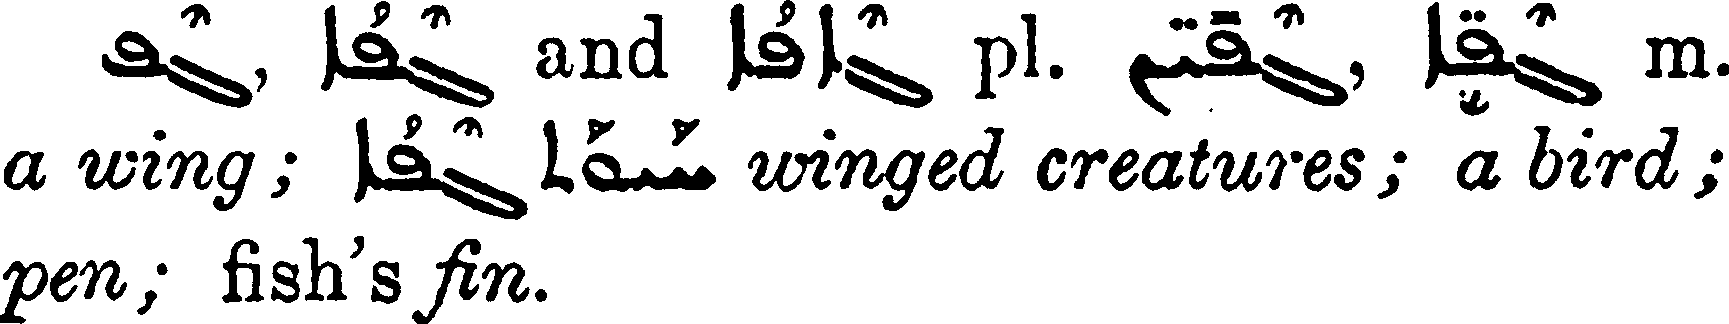 ܓܶܦ, ܓܶܦܳܐ and ܓܶܐܦܳܐ pl. ܓܶܦܺܝ̈ܢ, ܓܶܦ̈ܶܐ m.
a wing; ܚܰܝܘܰܬ ܓܶܦܳܐ winged creatures; a bird;
pen; fish's fin.